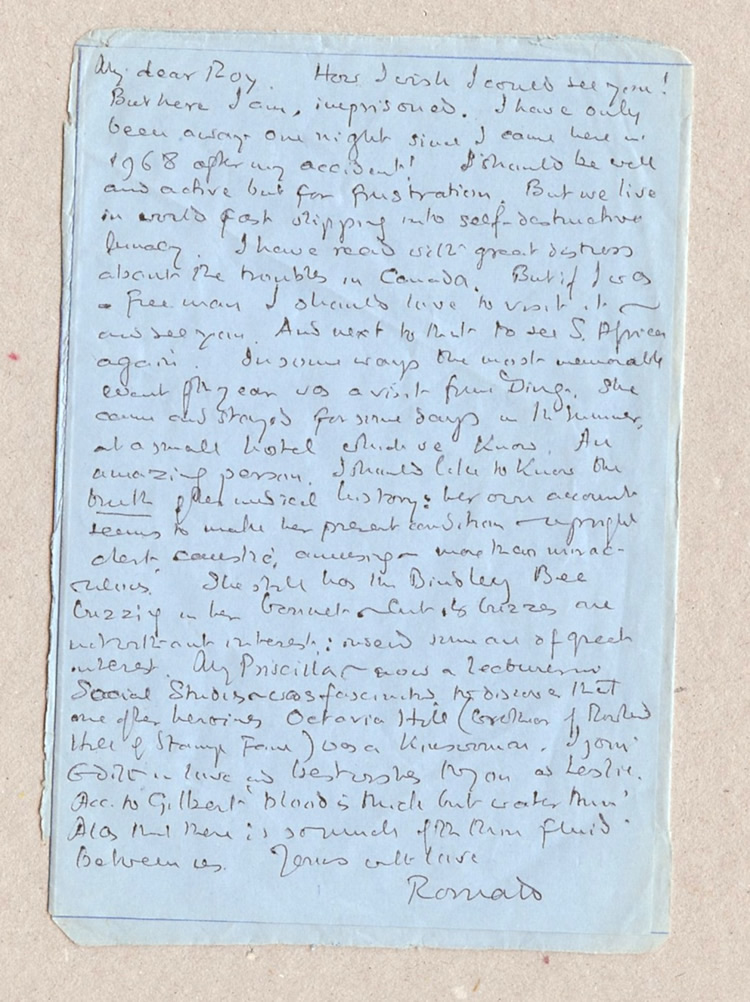 My dear Roy. How I wish I could see you!
But here I am, imprisoned. I have only
been away one night since I came here in
1968 after my accident! I should be well
and active but for frustration. But we live
in world fast slipping into self-destructive
lunacy. I have read with great distress
about the troubles in Canada. But if I was
a free man I should love to visit it —
and see you. And next to that to see S. Africa
again. In some ways the most memorable
event of the year was a visit from Ding. She
came and stayed for some days in the summer,
at a small hotel which we know. An
amazing person. I should like to know the
truth of her medical history: her own account
seems to make her present condition – upright
alert caustic, amusing – more than mirac-
ulous. She still has the Bindley Bee
buzzing in her bonnet – but its buzzes are
not without interest: indeed some are of great
interest. My Priscilla – now a lecturer in
Social Studies – was fascinated to discover that
one of her heroines Octavia Hill ( of Rowland
Hill of Stamp Fame) was a Kinswoman. I join
Edith in love and best wishes to you and Leslie.
Acc. to Gilbert 'blood is thick but water thin'
Alas that there is so much of the thin fluid
between us. Yours with love
Ronald